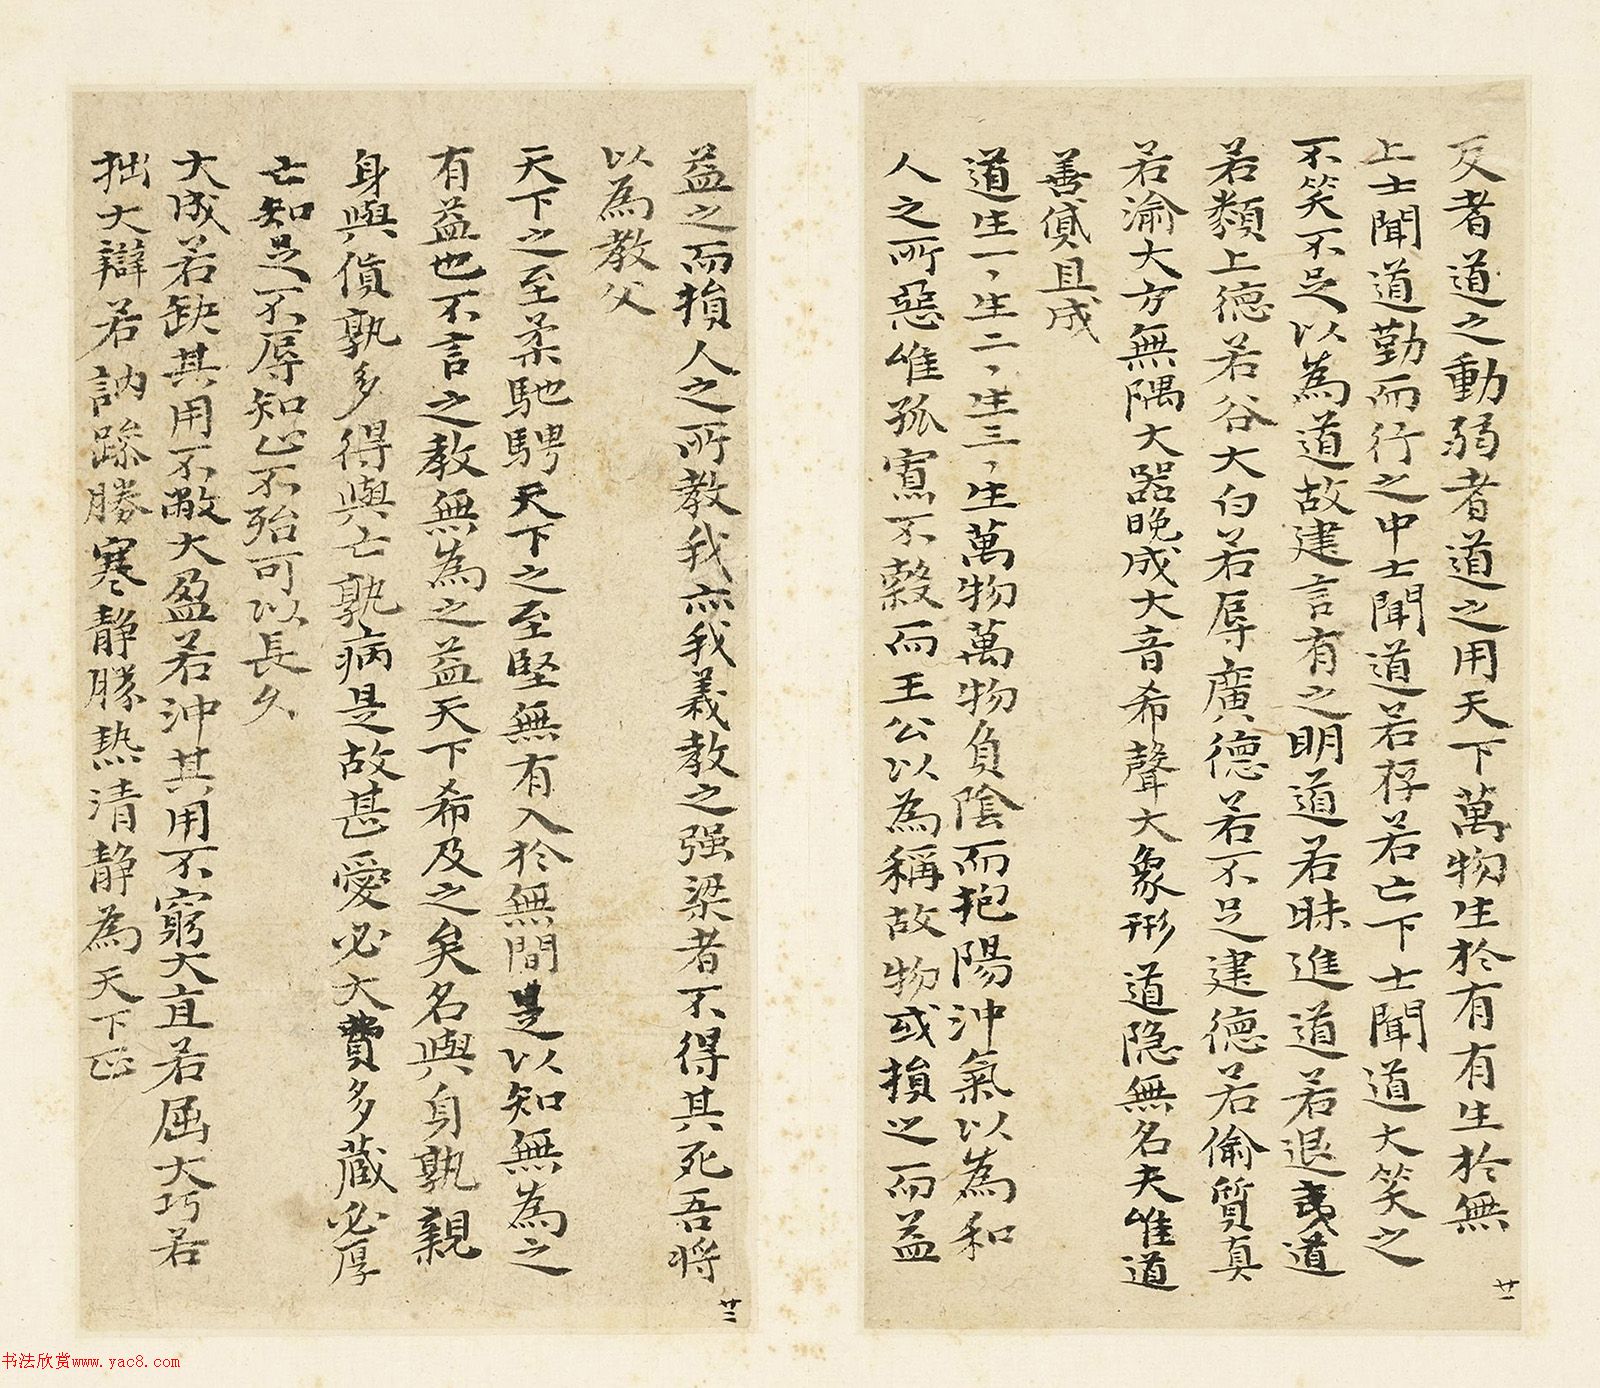 反者道之動弱者道之用天下萬物生於有有生於無
上士聞道勤而行之中士聞道若存若亡下士聞道大笑之
不笑不足以為道故建言有之明道若昧進道若退夷道
若纇上德若谷大白若辱廣德若不足建德若偷質真
若渝大方無隅大器晚成大音希聲大象形道隱無名夫唯道
善貸且成
道生一、生二、生三、生萬物萬物負陰而抱陽沖氣以為和
人之所惡唯孤寡不穀而王公以為稱故物或損之而益
廿一
益之而損人之所教我亦我義教之强梁者不得其死吾將
以為教父
天下之至柔馳騁天下之至堅無有入於無間是以知無為之
有益也不言之教無為之益天下希及之矣名與身孰親
身與貨孰多得與亡孰病是故甚愛必大費多藏必厚
亡知足不辱知止不殆可以長久
大成若缺其用不敝大盈若沖其用不窮大直若屈大巧若
拙大辯若訥躁勝寒靜勝熱清靜為天下正
廿二
书法欣赏www.yac8.com